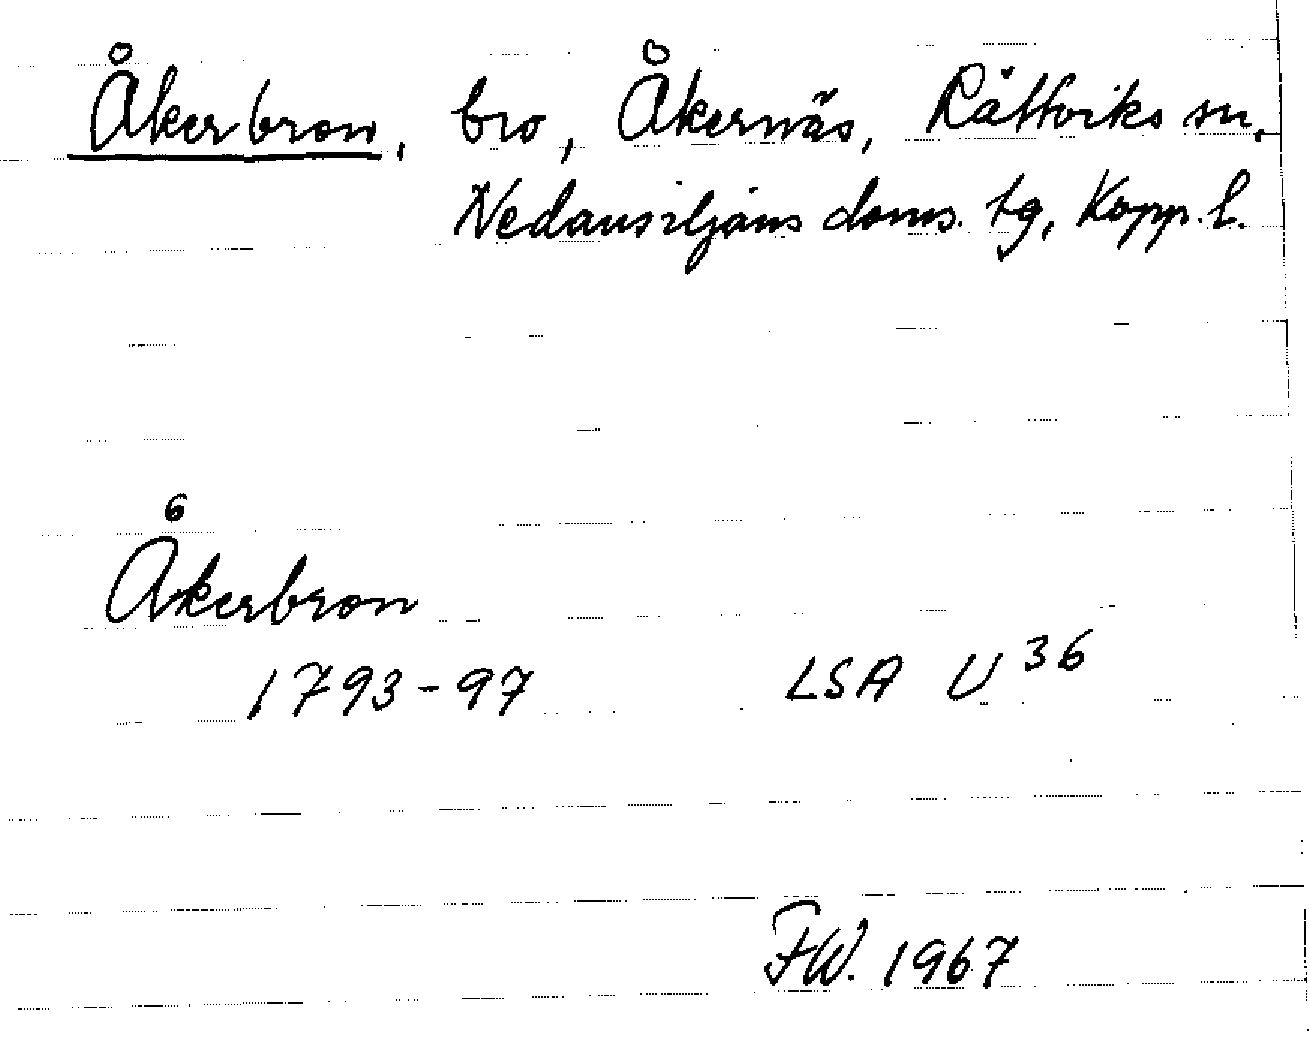 Åkerbron, bro, Åkernäs, Rättviks sn,
Nedansiljans doms. tg, Kopp. l.
Åkerbron
1793-97 LSA U 36
FW. 1967